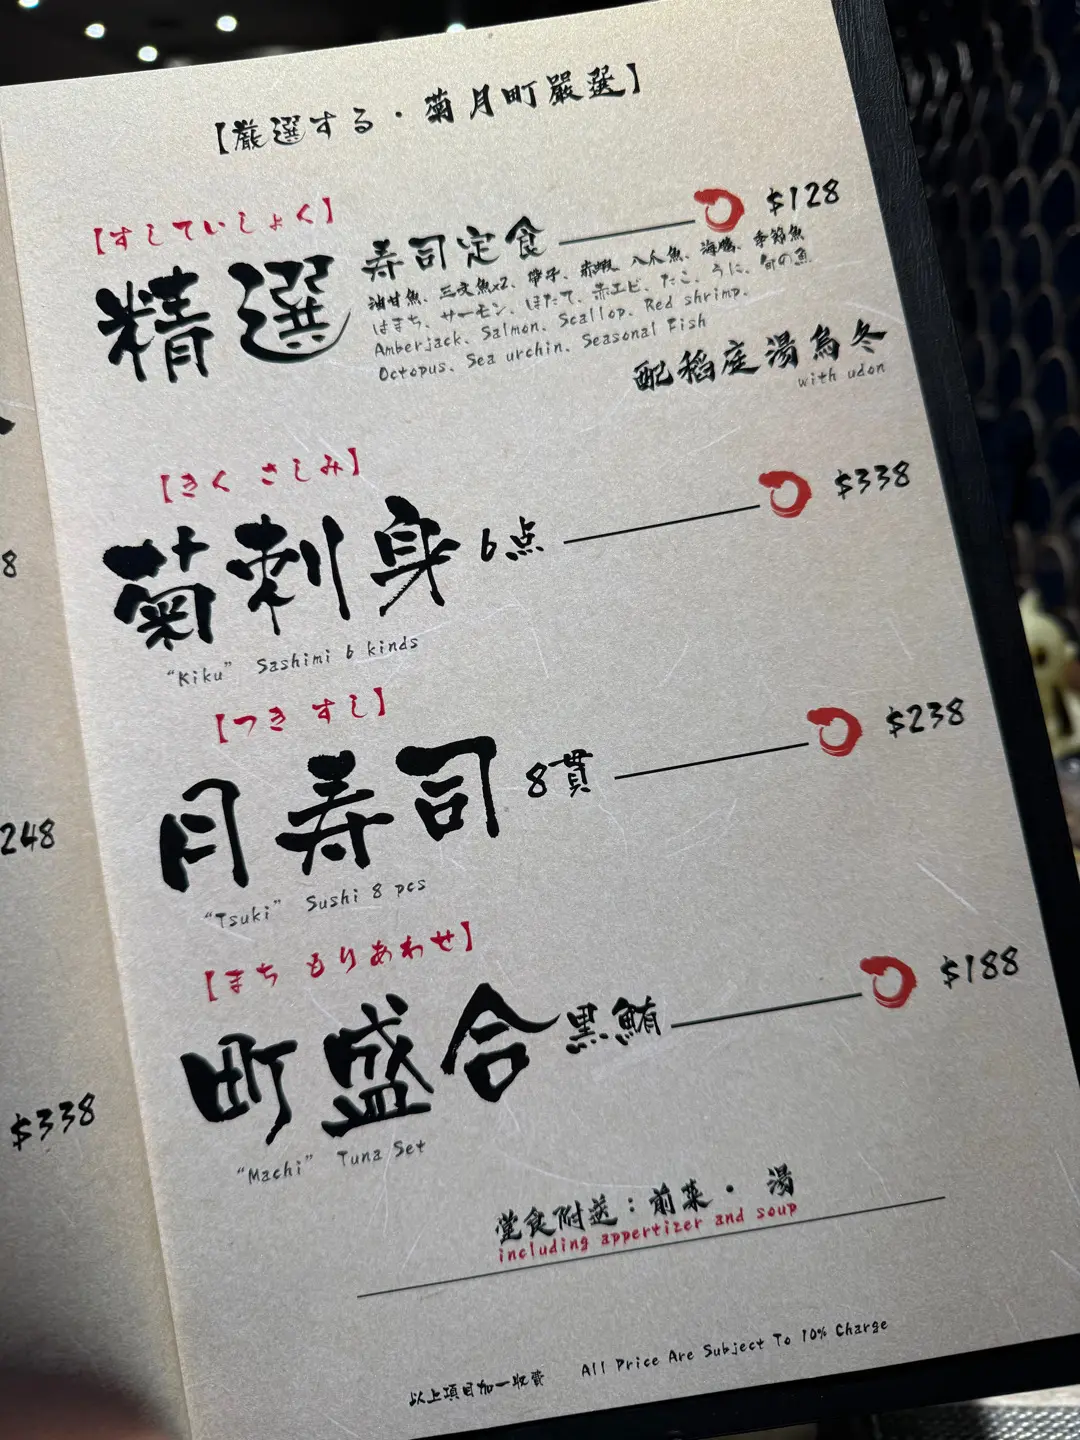 【厳選する・菊月町嚴選】
【すしていしょく】
精選 寿司定食 $128
油甘魚、三文魚x2、帶子、赤蝦、八爪魚、海膽、季節魚
はまち、サーモン、ほたて、赤エビ、たこ、うに、旬の魚
Amberjack、Salmon、Scallop、Red shrimp、
Octopus、Sea urchin、Seasonal Fish
配稻庭湯烏冬
with udon
【きく さしみ】
菊刺身 6点 $338
"Kiku" Sashimi 6 kinds
【つき すし】
月寿司 8貫 $238
"Tsuki" Sushi 8 pcs
【まち もりあわせ】
町盛合 黒鮪 $188
"Machi" Tuna Set
堂食附送：前菜・湯
including appertizer and soup
以上項目加一收費 All Price Are Subject To 10% Charge
8
248
$338